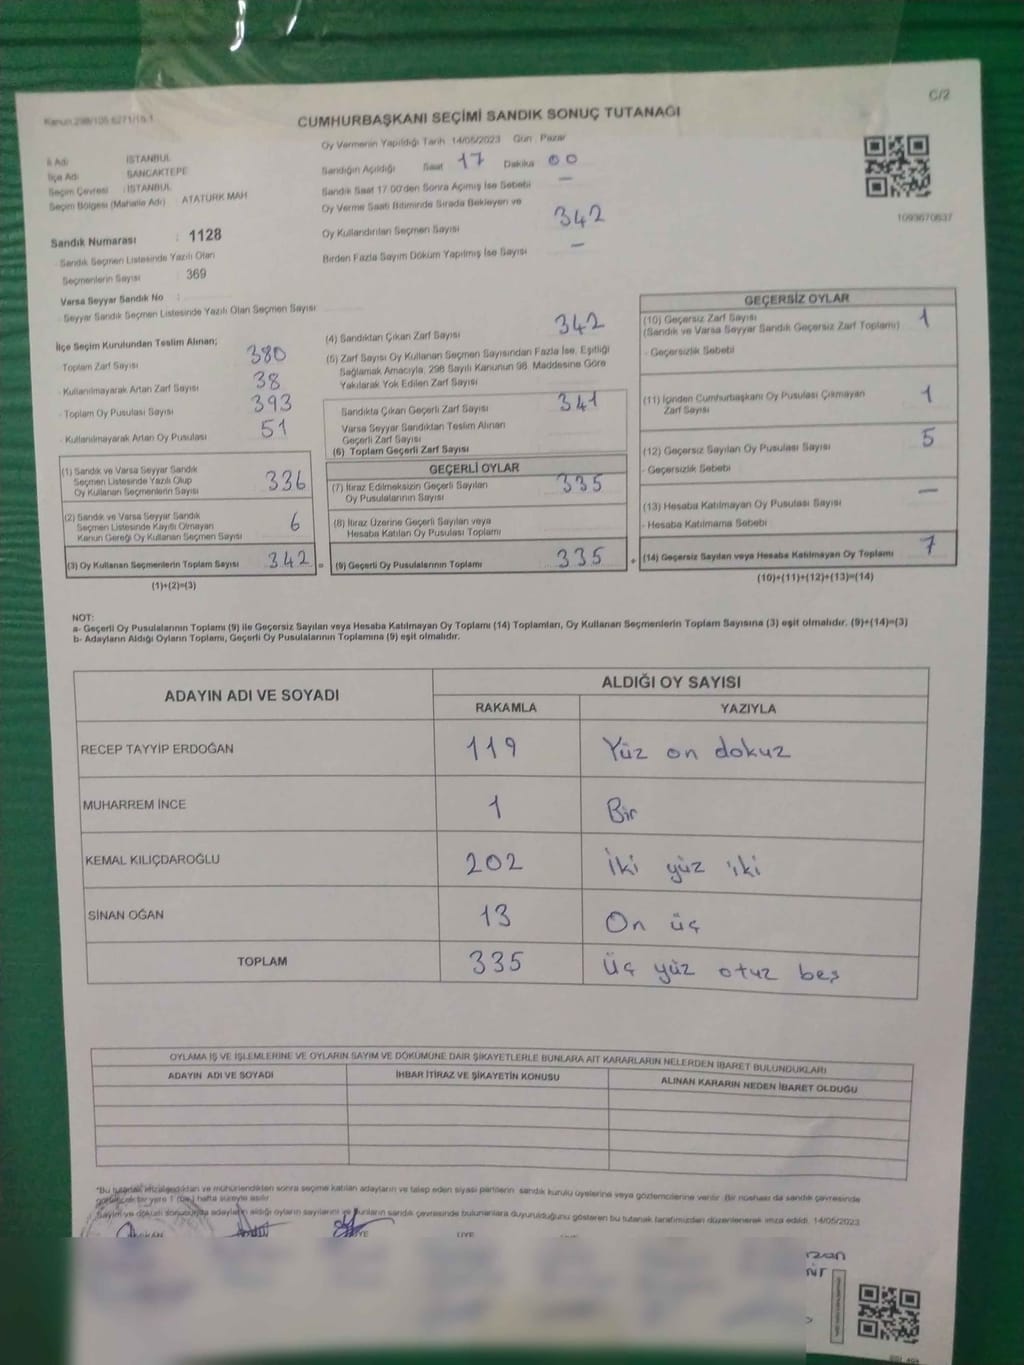 C/2
Kanun:298/105 6271/15-1
CUMHURBAŞKANI SEÇİMİ SANDIK SONUÇ TUTANAĞI
Oy Vermenin Yapıldığı Tarih 14/05/2023 Gün : Pazar
İl Adı : İSTANBUL
İlçe Adı : SANCAKTEPE
Seçim Çevresi : İSTANBUL
Seçim Bölgesi (Mahalle Adı) ATATÜRK MAH
Sandığın Açıldığı Saat 17 Dakika 00
Sandık Saat 17.00'den Sonra Açımış İse Sebebi —
Oy Verme Saati Bitiminde Sırada Bekleyen ve
Oy Kullandırılan Seçmen Sayısı 342
Birden Fazla Sayım Döküm Yapılmış İse Sayısı —
1093670637
Sandık Numarası : 1128
Sandık Seçmen Listesinde Yazılı Olan
Seçmenlerin Sayısı : 369
Varsa Seyyar Sandık No :
Seyyar Sandık Seçmen Listesinde Yazılı Olan Seçmen Sayısı
İlçe Seçim Kurulundan Teslim Alınan;
- Toplam Zarf Sayısı 380
- Kullanılmayarak Artan Zarf Sayısı 38
- Toplam Oy Pusulası Sayısı 393
- Kullanılmayarak Artan Oy Pusulası 51
(1) Sandık ve Varsa Seyyar Sandık
Seçmen Listesinde Yazılı Olup
Oy Kullanan Seçmenlerin Sayısı 336
(2) Sandık ve Varsa Seyyar Sandık
Seçmen Listesinde Kayıtlı Olmayan
Kanun Gereği Oy Kullanan Seçmen Sayısı 6
(3) Oy Kullanan Seçmenlerin Toplam Sayısı 342 =
(1)+(2)=(3)
(4) Sandıktan Çıkan Zarf Sayısı 342
(5) Zarf Sayısı Oy Kullanan Seçmen Sayısından Fazla İse, Eşitliği
Sağlamak Amacıyla, 298 Sayılı Kanunun 98. Maddesine Göre
Yakılarak Yok Edilen Zarf Sayısı
Sandıkta Çıkan Geçerli Zarf Sayısı 341
Varsa Seyyar Sandıktan Teslim Alınan
Geçerli Zarf Sayısı
(6) Toplam Geçerli Zarf Sayısı
GEÇERLİ OYLAR
(7) İtiraz Edilmeksizin Geçerli Sayılan
Oy Pusulalarının Sayısı 335
(8) İtiraz Üzerine Geçerli Sayılan veya
Hesaba Katılan Oy Pusulası Toplamı
(9) Geçerli Oy Pusulalarının Toplamı 335 +
GEÇERSİZ OYLAR
(10) Geçersiz Zarf Sayısı 1
(Sandık ve Varsa Seyyar Sandık Geçersiz Zarf Toplamı)
- Geçersizlik Sebebi
(11) İçinden Cumhurbaşkanı Oy Pusulası Çıkmayan
Zarf Sayısı 1
(12) Geçersiz Sayılan Oy Pusulası Sayısı 5
- Geçersizlik Sebebi
(13) Hesaba Katılmayan Oy Pusulası Sayısı —
- Hesaba Katılmama Sebebi
(14) Geçersiz Sayılan veya Hesaba Katılmayan Oy Toplamı 7
(10)+(11)+(12)+(13)=(14)
NOT:
a- Geçerli Oy Pusulalarının Toplamı (9) ile Geçersiz Sayılan veya Hesaba Katılmayan Oy Toplamı (14) Toplamları, Oy Kullanan Seçmenlerin Toplam Sayısına (3) eşit olmalıdır. (9)+(14)=(3)
b- Adayların Aldığı Oyların Toplamı, Geçerli Oy Pusulalarının Toplamına (9) eşit olmalıdır.
ADAYIN ADI VE SOYADI ALDIĞI OY SAYISI
RAKAMLA YAZIYLA
RECEP TAYYİP ERDOĞAN 119 Yüz on dokuz
MUHARREM İNCE 1 Bir
KEMAL KILIÇDAROĞLU 202 İki yüz iki
SİNAN OĞAN 13 On üç
TOPLAM 335 Üç yüz otuz beş
OYLAMA İŞ VE İŞLEMLERİNE VE OYLARIN SAYIM VE DÖKÜMÜNE DAİR ŞİKAYETLERLE BUNLARA AİT KARARLARIN NELERDEN İBARET BULUNDUKLARI
ADAYIN ADI VE SOYADI İHBAR İTİRAZ VE ŞİKAYETİN KONUSU ALINAN KARARIN NEDEN İBARET OLDUĞU
"Bu tutanak imzalandıktan ve mühürlendikten sonra seçime katılan adayların ve talep eden siyasi partilerin sandık kurulu üyelerine veya gözlemcilerine verilir. Bir nüshası da sandık çevresinde
görülecek bir yere 1 (bir) hafta süreyle asılır.
Sayım ve döküm sonucunda adayların aldığı oyların sayılarını ve bunların sandık çevresinde bulunanlara duyurulduğunu gösteren bu tutanak tarafımızdan düzenlenerek imza edildi. 14/05/2023
BAŞKAN ÜYE ÜYE